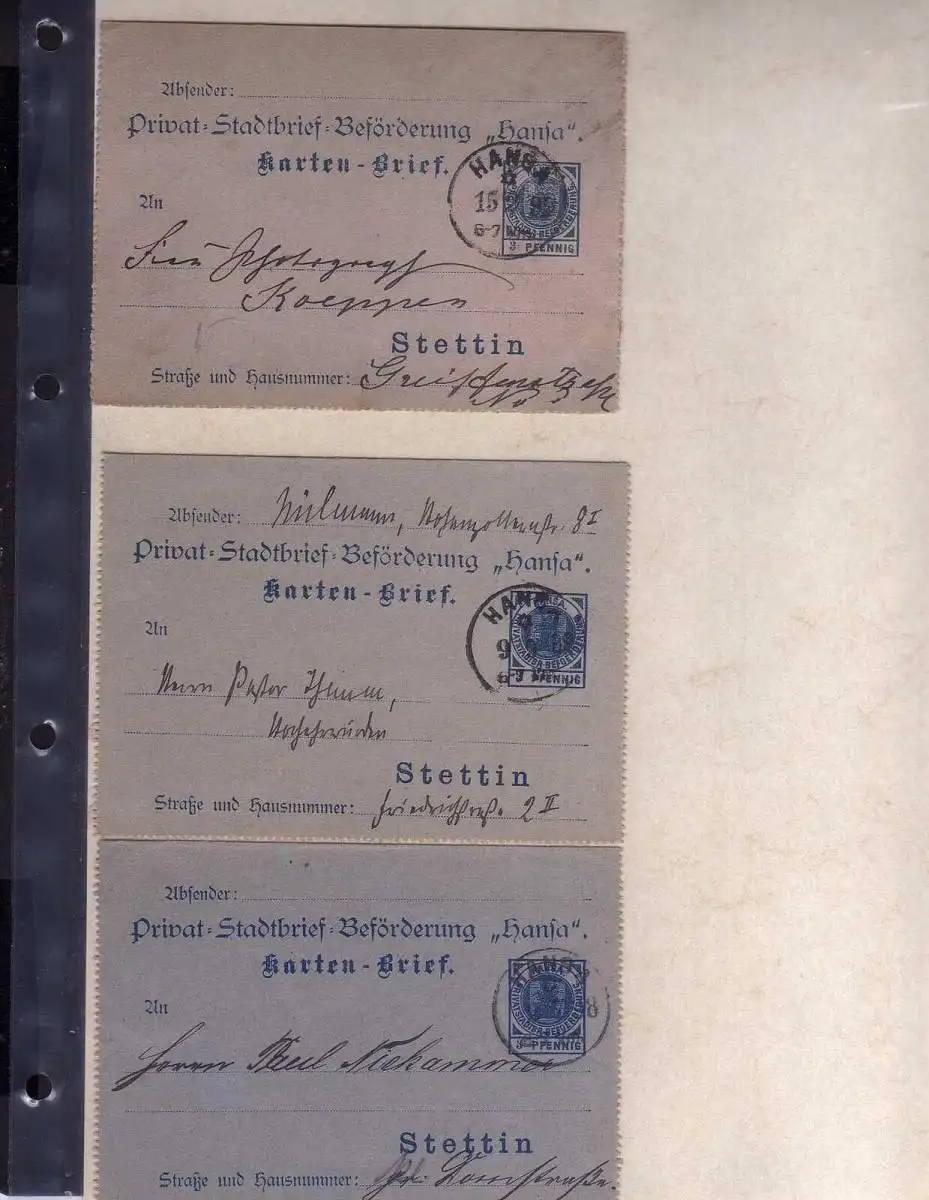 Absender:
Privat-Stadtbrief-Beförderung „Hansa“.
Karten-Brief.
HANSA
15
6-7
3 PFENNIG
An
Frau Photograph
Koeppen
Stettin
Straße und Hausnummer:
Absender: Hohenzollernstr. 8 I
Privat-Stadtbrief-Beförderung „Hansa“.
Karten-Brief.
HANSA
9
3 PFENNIG
An
Herrn Pastor Thimm,
Hochehrwürden
Stettin
Straße und Hausnummer: Friedrichstraße 2 II
Absender:
Privat-Stadtbrief-Beförderung „Hansa“.
Karten-Brief.
HANSA
8
3 PFENNIG
An
Herrn Paul Niekammer
Stettin
Straße und Hausnummer: Gr. Domstraße.